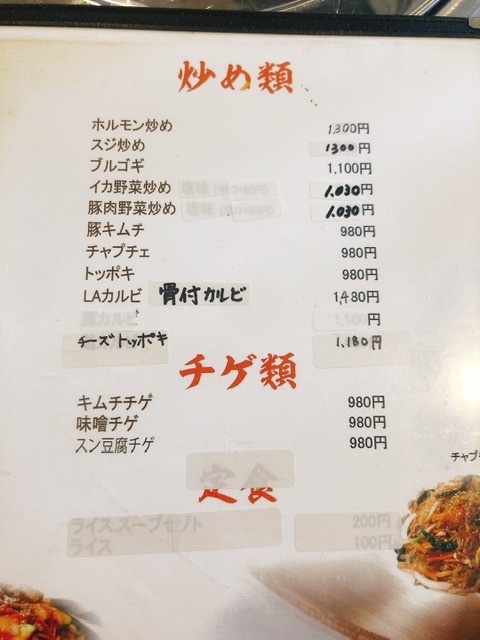 炒め類
ホルモン炒め 1,300円
スジ炒め 1300円
ブルゴギ 1,100円
イカ野菜炒め 塩味 1,030円
豚肉野菜炒め 塩味 1,030円
豚キムチ 980円
チャプチェ 980円
トッポキ 980円
LAカルビ 骨付カルビ 1,480円
豚カルビ 円
チーズトッポキ 1,180円
チゲ類
キムチチゲ 980円
味噌チゲ 980円
スン豆腐チゲ 980円
チャプ
定食
ライス,スープセット 200円
ライス 100円